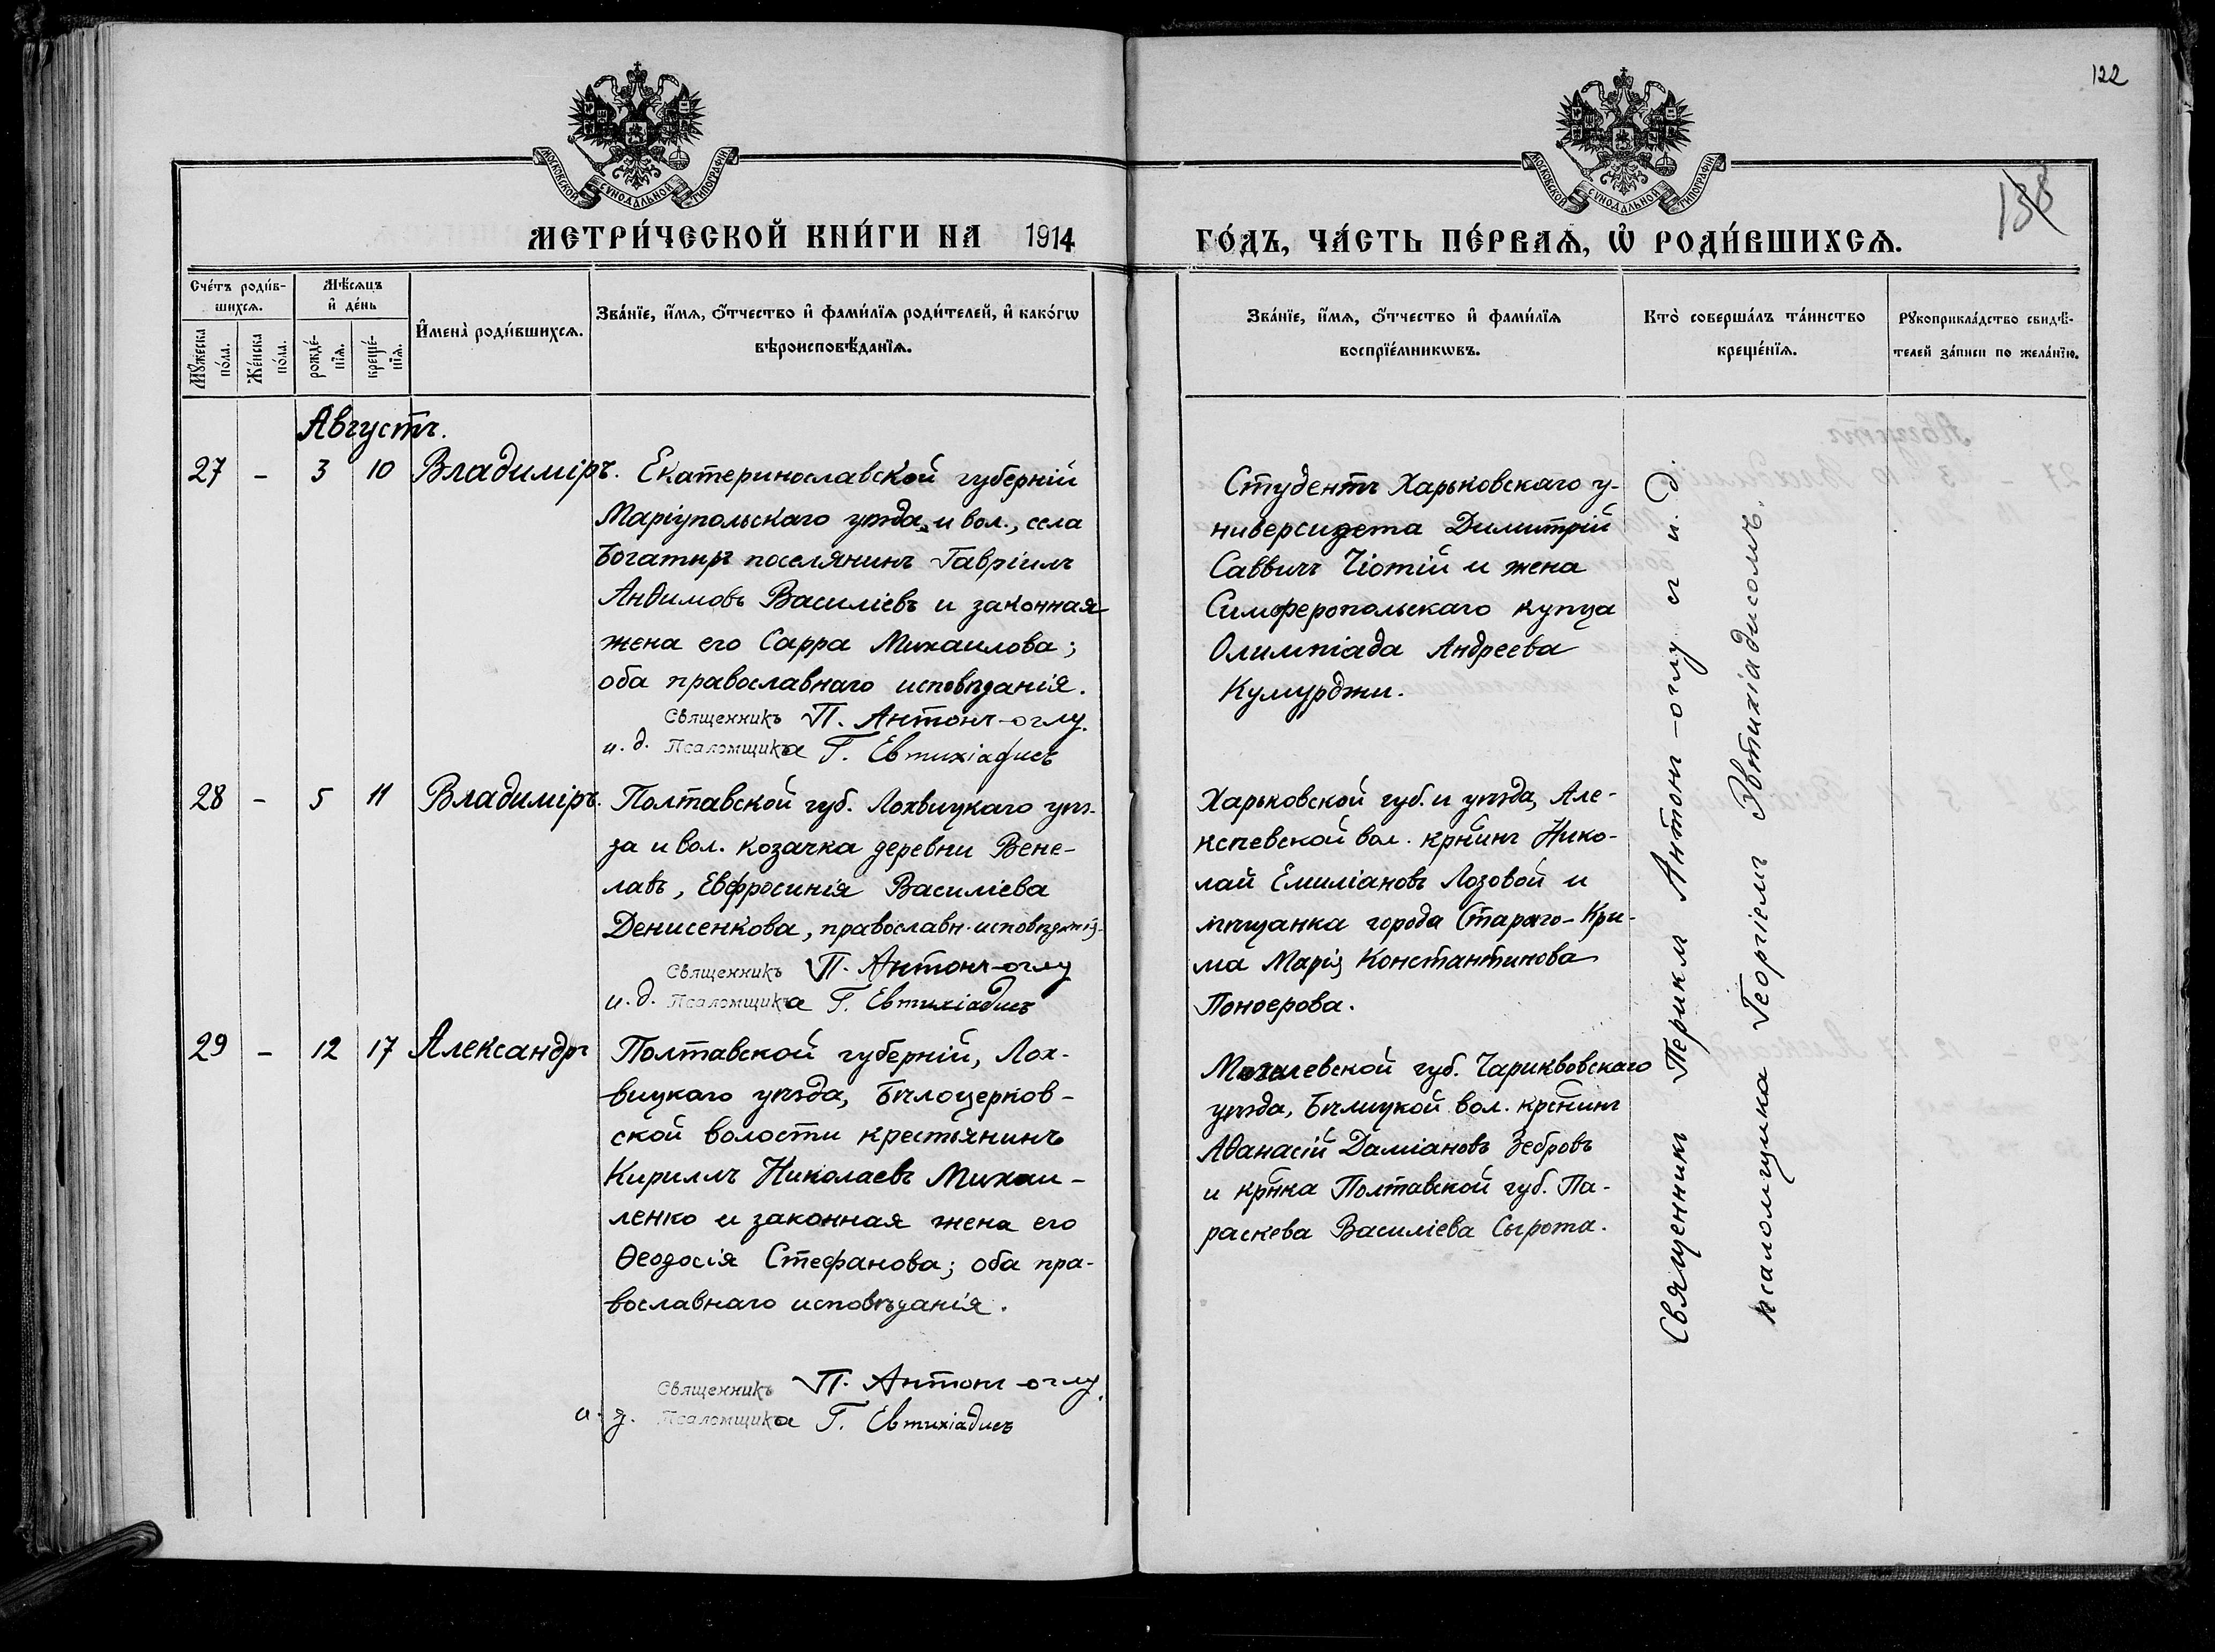 122
138
МОСКОВСКОЙ СѴНОДАЛЬНОЙ ТИПОГРАФІИ
МОСКОВСКОЙ СѴНОДАЛЬНОЙ ТИПОГРАФІИ
МЕТРИ́ЧЕСКОЙ КНИ́ГИ НА 1914
ГО́ДЪ, ЧА́СТЬ ПЕ́РВАѦ, Ѽ РОДИ́ВШИХСѦ.
Сче́тъ роди́в-
шихсѧ.
Мꙋ́жеска по́ла.
Же́нска по́ла.
Мѣ́сѧцъ
и҆ де́нь
рожде́-
нїѧ.
креще́-
нїѧ.
И҆мена̀ роди́вшихсѧ.
Зва́нїе, и҆́мѧ, ѻ҆́тчество и҆ фами́лїѧ роди́телей, и҆ како́гѡ
вѣроисповѣ́данїѧ.
Зва́нїе, и҆́мѧ, ѻ҆́тчество и҆ фами́лїѧ
воспрїе́мникѡвъ.
Кто̀ соверша́лъ та́инство
креще́нїѧ.
Рꙋкоприкла́дство свидѣ́-
телей за́писи по жела́нїю.
Августъ.
27 - 3 10 Владиміръ.
Екатеринославской губерніи
Маріупольскаго уѣзда и вол., села
Богатырь поселянинъ Гавріилъ
Анѳимовъ Василіевъ и законная
жена его Сарра Михаилова;
оба православнаго исповѣданія.
Священникъ П. Антонъ-оглу.
и. д. Псаломщика Г. Евтихіадисъ
Студентъ Харьковскаго у-
ниверситета Димитрій
Саввичъ Чіотій и жена
Симферопольскаго купца
Олимпіада Андреева
Кумурджи.
28 - 5 11 Владиміръ.
Полтавской губ. Лохвицкаго уѣз-
да и вол. козачка деревни Вене-
лавъ, Евфросинія Василіева
Денисенкова, православн. исповѣданія.
Священникъ П. Антонъ-оглу
и. д. Псаломщика Г. Евтихіадисъ
Харьковской губ. и уѣзда, Але-
ксѣевской вол. крнинъ Нико-
лай Емиліановъ Лозовой и
мѣщанка города Стараго-Кры-
ма Марія Константинова
Поноерова.
29 - 12 17 Александръ
Полтавской губерніи, Лох-
вицкаго уѣзда, Бѣлоцерков-
ской волости крестьянинъ
Кириллъ Николаевъ Михаи-
ленко и законная жена его
Ѳеодосія Стефанова; оба пра-
вославнаго исповѣданія.
Священникъ П. Антонъ-оглу.
и. д. Псаломщика Г. Евтихіадисъ
Могилевской губ. Чариквовскаго
уѣзда, Бѣлицкой вол. крснинъ
Аѳанасій Даміановъ Зебровъ
и крнка Полтавской губ. Па-
раскева Василіева Сырота.
Священникъ Периклъ Антонъ-оглу съ и. д.
псаломщика Георгіемъ Евтихіадисомъ.